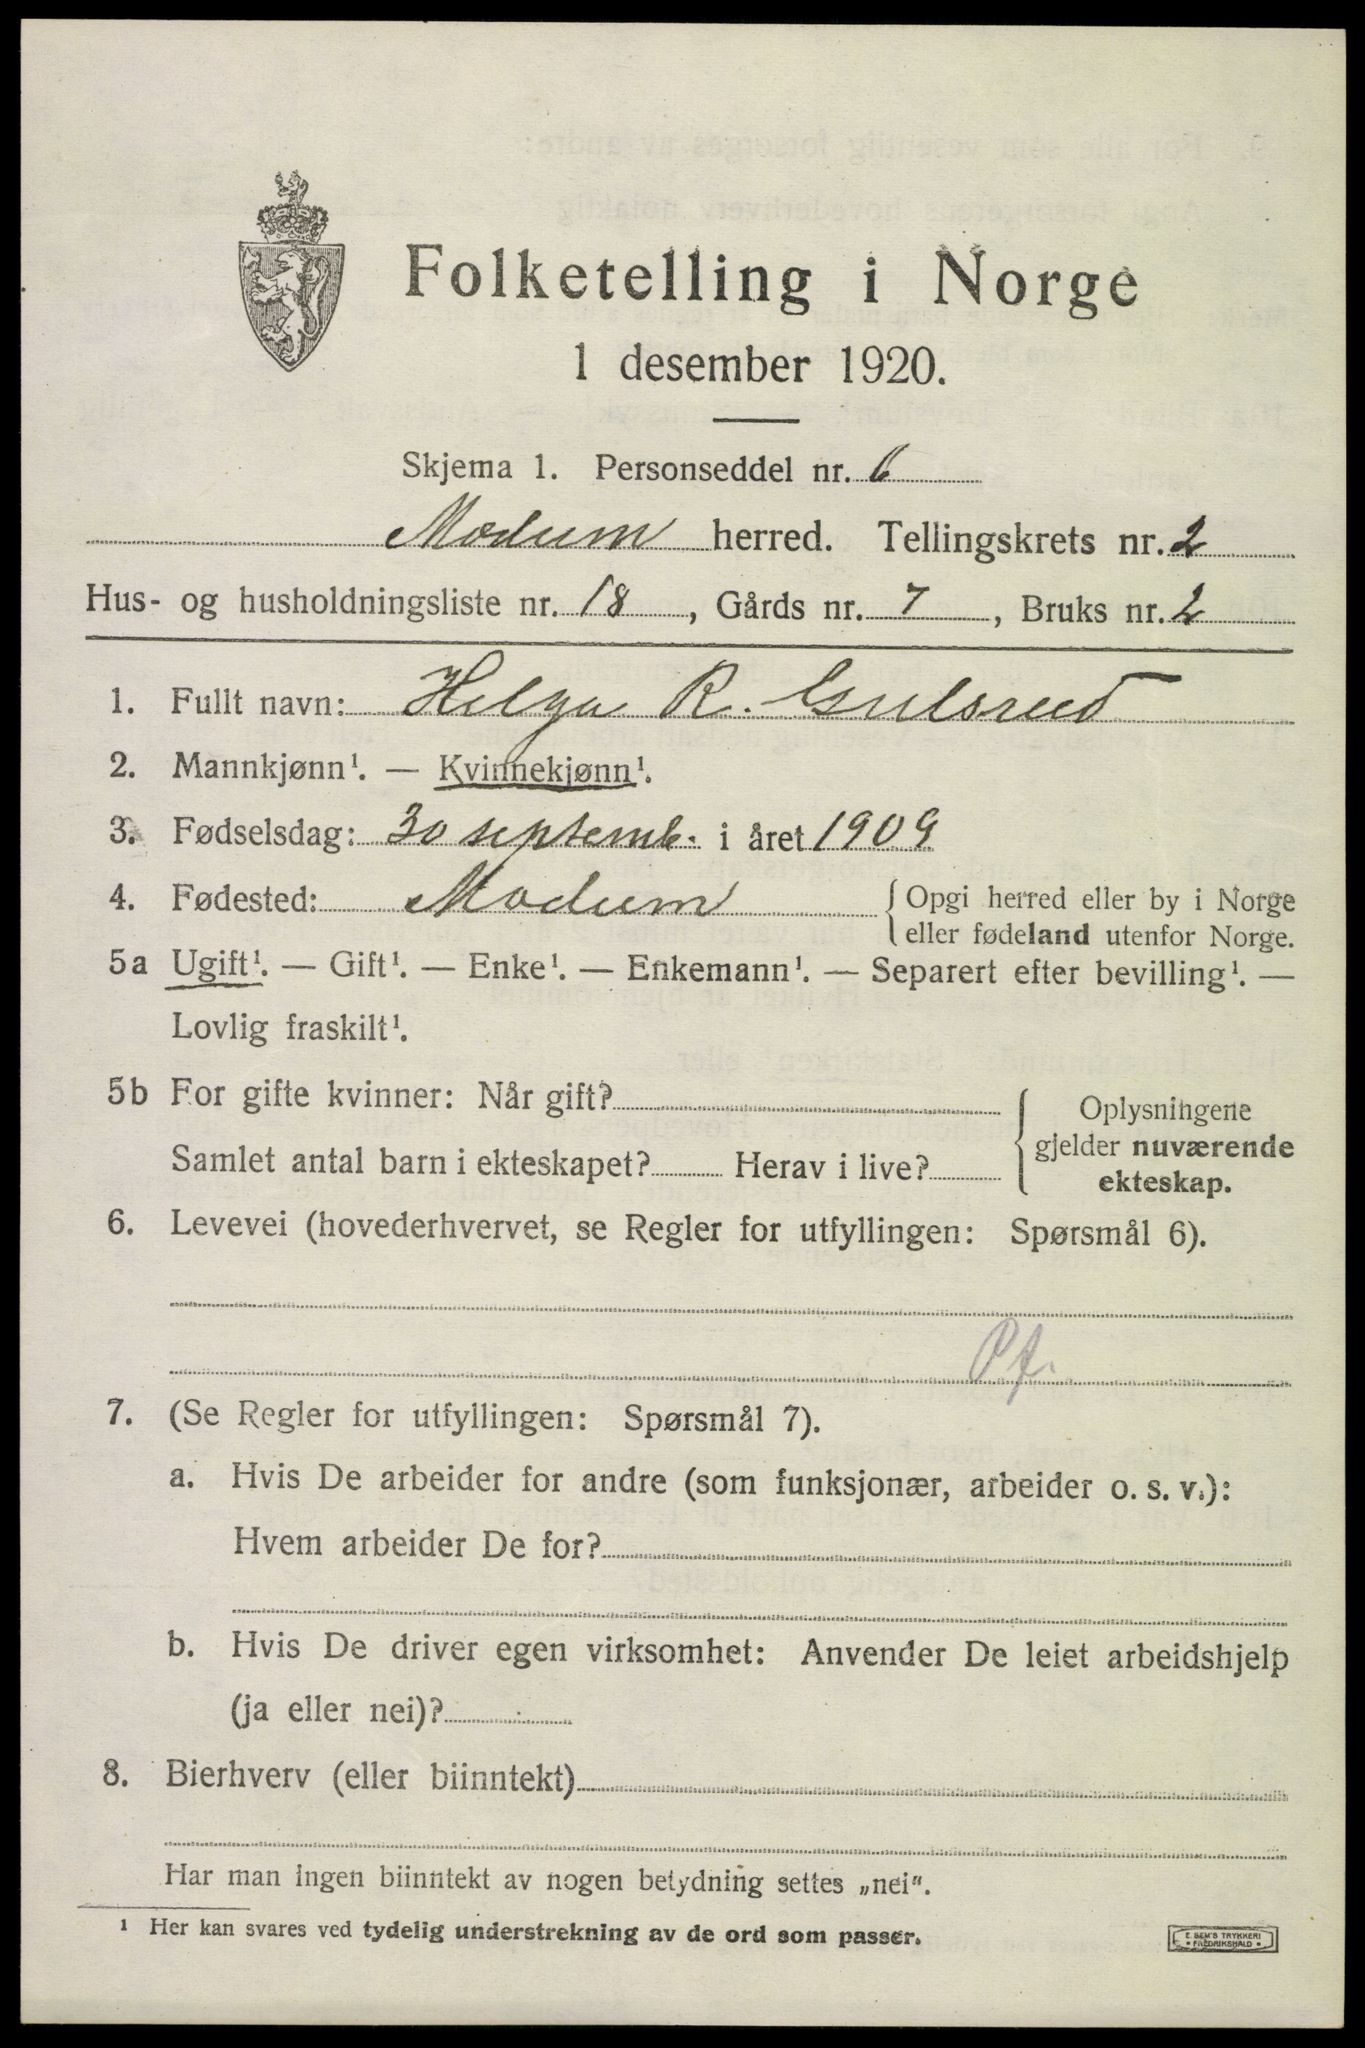 Folketelling i Norge
1 desember 1920.
Skjema 1. Personseddel nr. 6
Modum herred. Tellingskrets nr. 2
Hus- og husholdningsliste nr. 18, Gårds nr. 7, Bruks nr. 2
1. Fullt navn: Helga R. Gulsrud
2. Mannkjønn¹. — Kvinnekjønn¹.
3. Fødselsdag: 30 septemb. i året 1909
4. Fødested: Modum { Opgi herred eller by i Norge
eller fødeland utenfor Norge.
5a Ugift¹. — Gift¹. — Enke¹. — Enkemann¹. — Separert efter bevilling¹. —
Lovlig fraskilt¹.
5b For gifte kvinner: Når gift?
Samlet antal barn i ekteskapet? Herav i live?
{ Oplysningene
gjelder nuværende
ekteskap.
6. Levevei (hovederhvervet, se Regler for utfyllingen: Spørsmål 6).
Pf.
7. (Se Regler for utfyllingen: Spørsmål 7).
a. Hvis De arbeider for andre (som funksjonær, arbeider o. s. v.):
Hvem arbeider De for?
b. Hvis De driver egen virksomhet: Anvender De leiet arbeidshjelp
(ja eller nei)?
8. Bierhverv (eller biinntekt)
Har man ingen biinntekt av nogen betydning settes „nei".
¹ Her kan svares ved tydelig understrekning av de ord som passer.
E. SEM'S TRYKKERI
• FREDRIKSHALD •